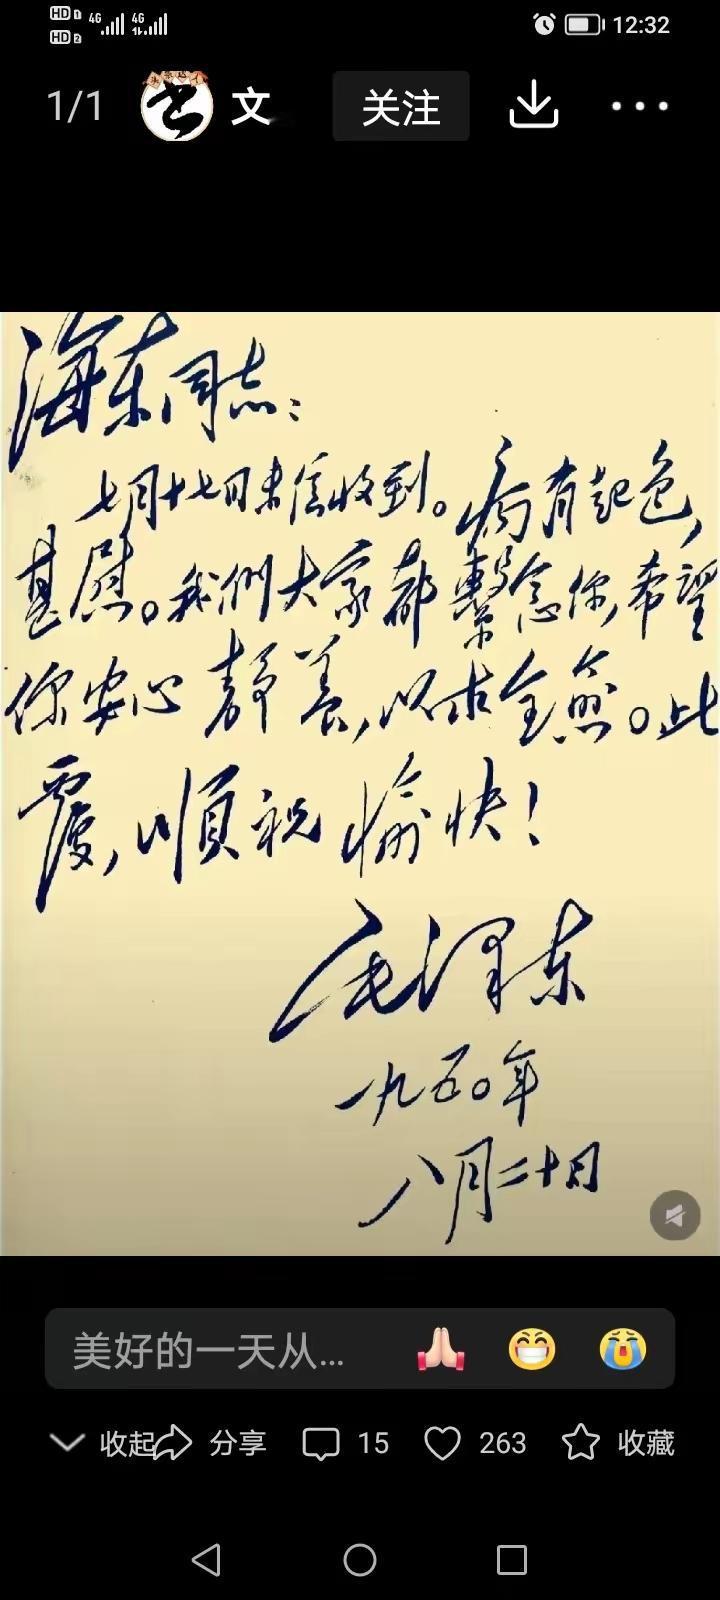 HD 1 4G 4G 12:32
HD 2
1/1 文 关注
海东同志：
七月十七日来信收到。病有起色，
甚慰。我们大家都繫念你，希望
你安心静养，以求全愈。此
覆，顺祝愉快！
毛泽东
一九五〇年
八月二十日
美好的一天从...
收起 分享 15 263 收藏